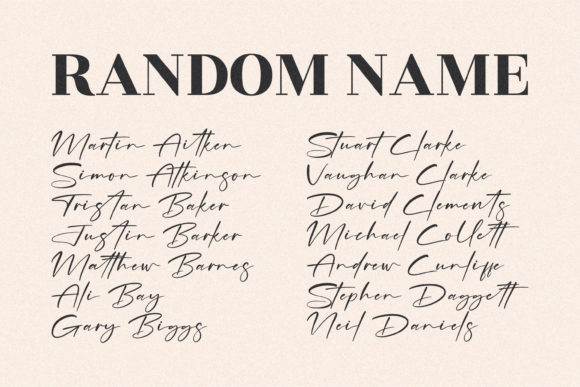 RANDOM NAME
Martin Aitken
Simon Atkinson
Tristan Baker
Justin Barker
Matthew Barnes
Ali Bay
Gary Biggs
Stuart Clarke
Vaughan Clarke
David Clements
Michael Collett
Andrew Cunliffe
Stephen Daggett
Neil Daniels